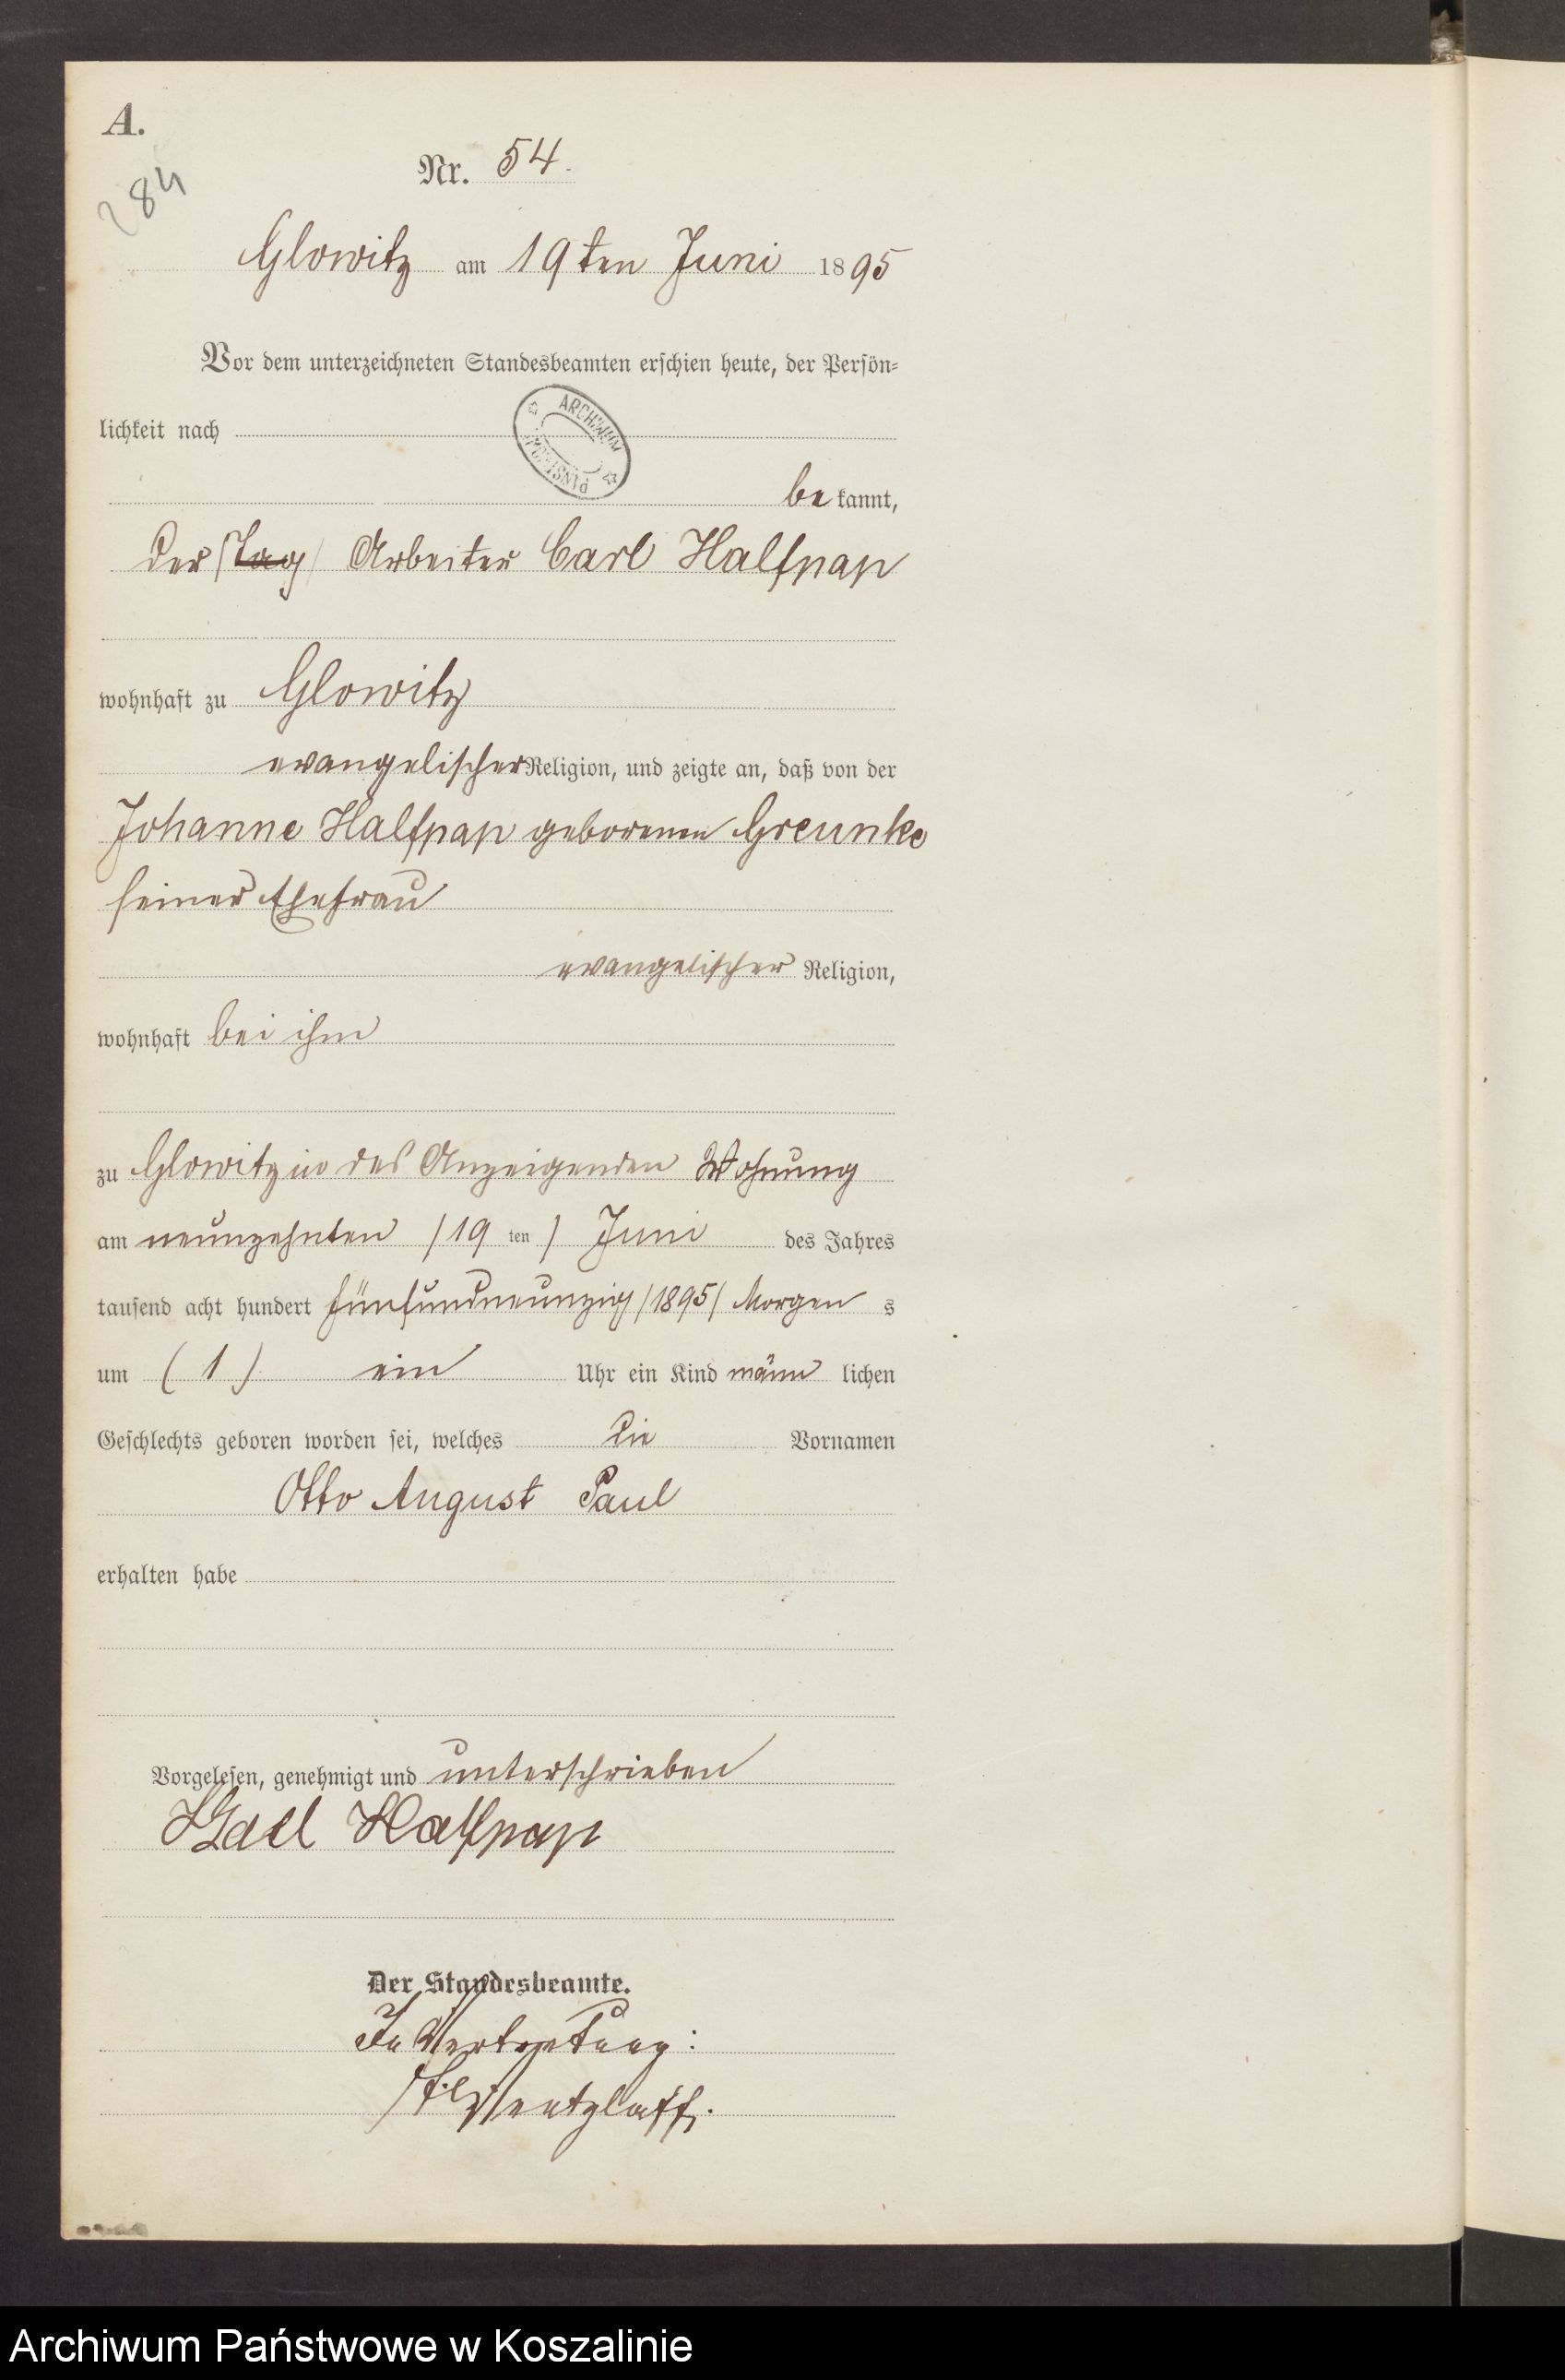 A.
284
Nr. 54.
Glowitz am 19ten Juni 1895
Vor dem unterzeichneten Standesbeamten erschien heute, der Persön-
lichkeit nach
ARCHIWUM
PAŃSTWOWE
be kannt,
der /Tag/ Arbeiter Carl Halfpap
wohnhaft zu Glowitz
evangelischer Religion, und zeigte an, daß von der
Johanne Halfpap geborenen Greunke
seiner Ehefrau
evangelischer Religion,
wohnhaft bei ihm
zu Glowitz in des Anzeigenden Wohnung
am neunzehnten /19 ten / Juni des Jahres
tausend acht hundert fünfundneunzig /1895/ Morgen s
um ( 1 ) ein Uhr ein Kind männ lichen
Geschlechts geboren worden sei, welches die Vornamen
Otto August Paul
erhalten habe
Vorgelesen, genehmigt und unterschrieben
Halfpap
Der Standesbeamte.
In Vertretung:
Archiwum Państwowe w Koszalinie